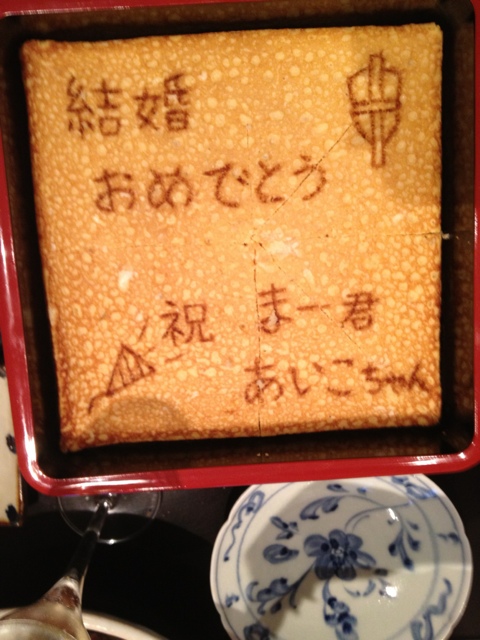 結婚
おめでとう
祝 まー君
あいこちゃん